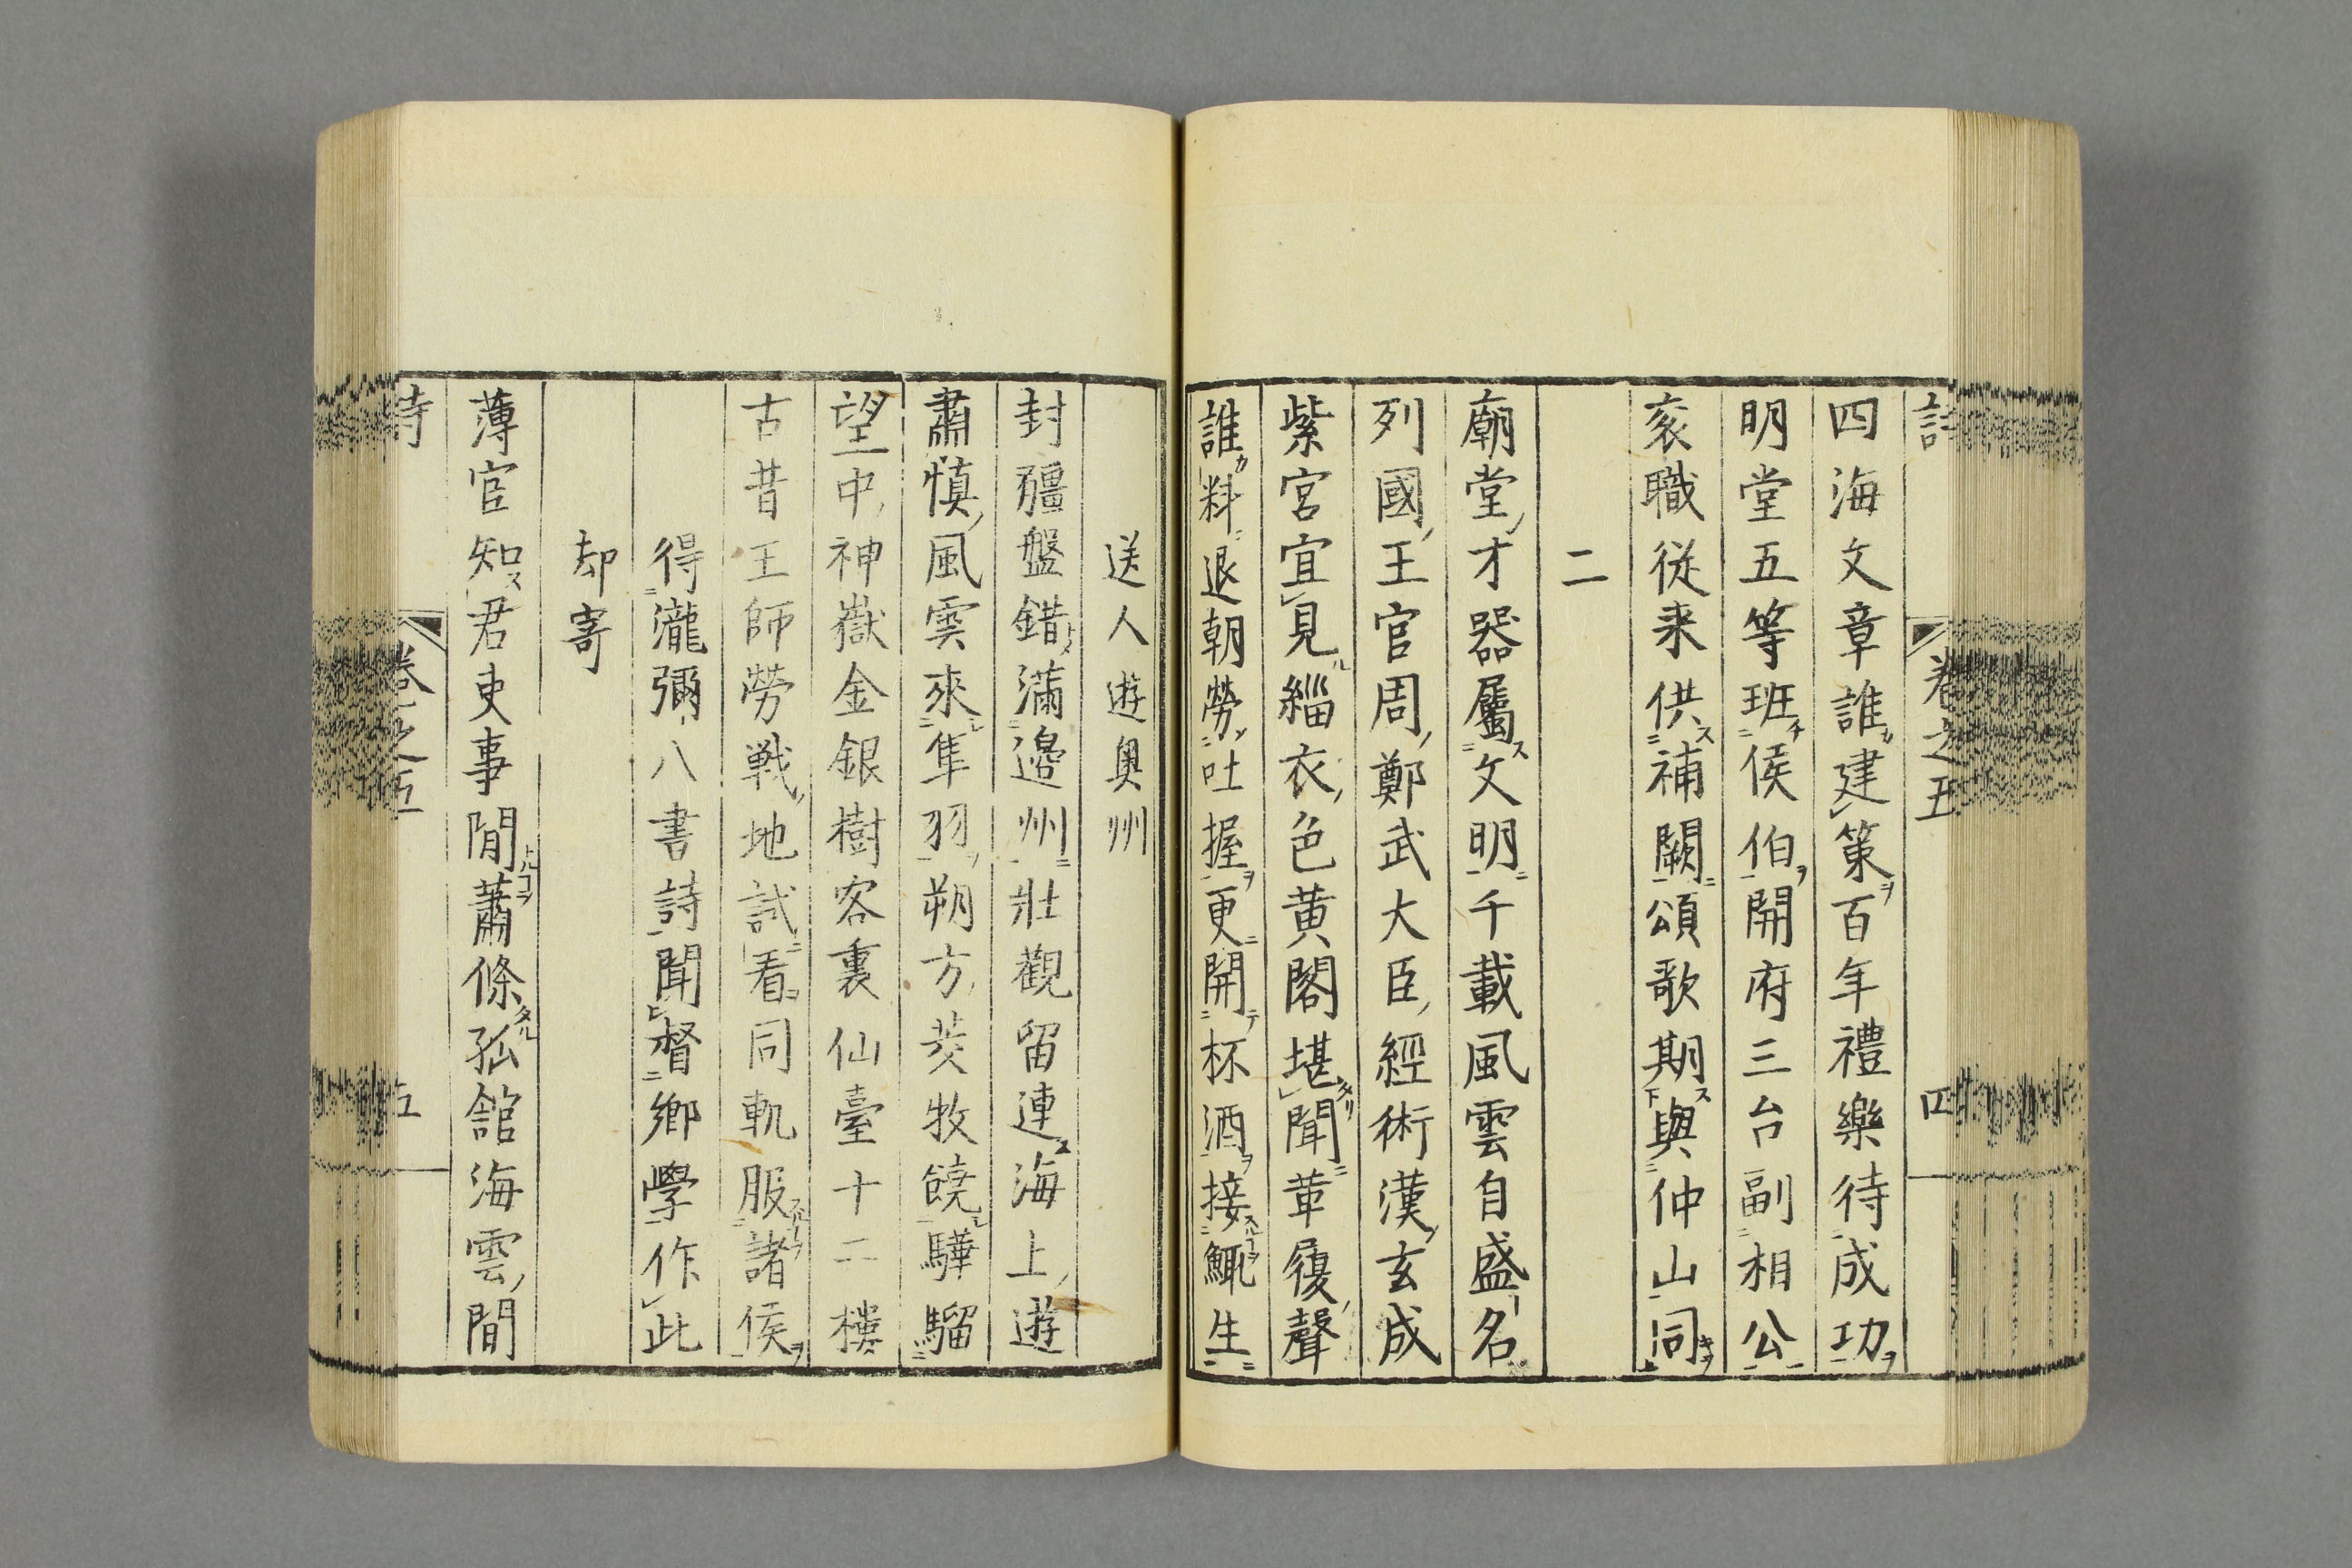 卷之五 四
四海文章誰建策百年禮樂待成功
明堂五等班侯伯開府三台副相公
衮職從来供補闕頌歌期與仲山同
二
廟堂才器屬文明千載風雲自盛名
列國王官周鄭武大臣經術漢玄成
紫宮宜見緇衣色黄閣堪聞革履聲
誰料退朝勞吐握更開杯酒接鯫生
送人遊奥州
封疆盤錯滿邊州壯觀留連海上遊
肅慎風雲來隼羽朔方茭牧饒驊騮
望中神嶽金銀樹客裏仙臺十二樓
古昔王師勞戦地試看同軌服諸侯
得瀧彌八書詩聞督鄉學作此
却寄
薄官知君吏事閒蕭條孤館海雲間
詩 卷之五 五